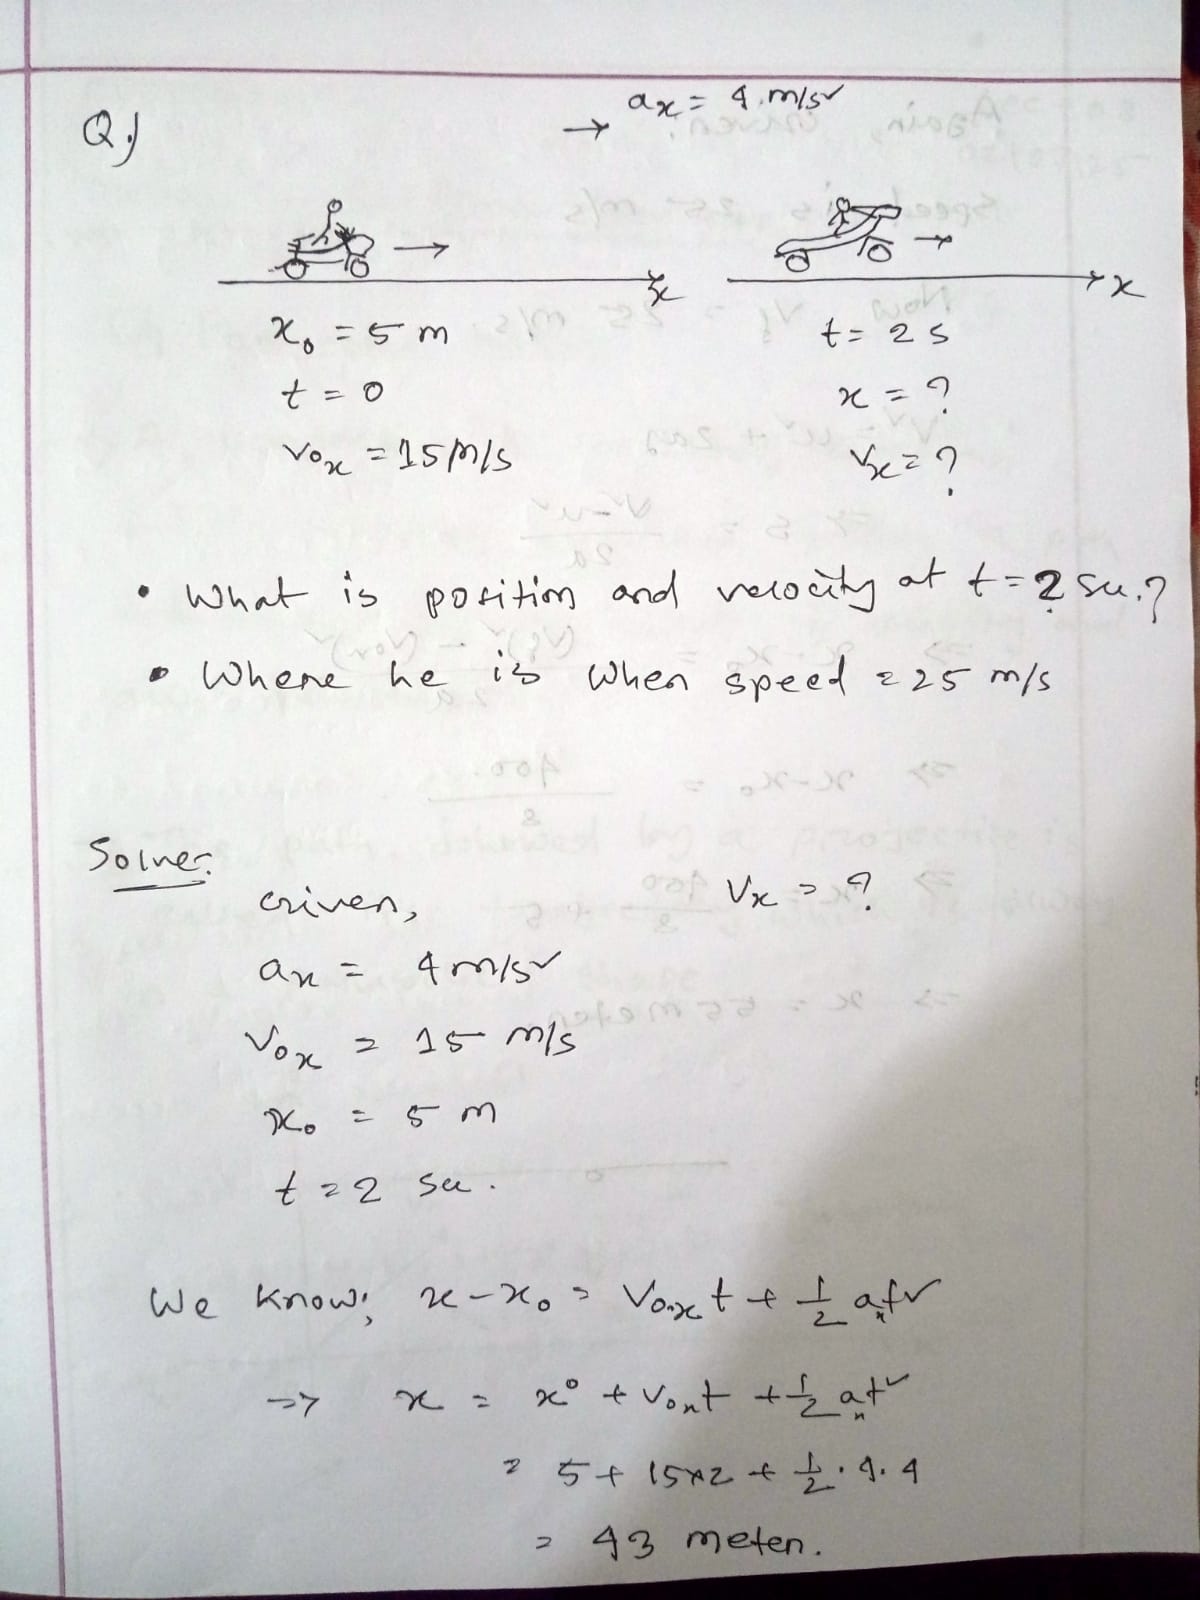 Q.)
→ ax = 4 m/s²
x x
x₀ = 5 m t = 2 s
t = 0 x = ?
v₀x = 15 m/s vx = ?
• What is position and velocity at t = 2 sec.?
• Where he is when speed = 25 m/s
Solve:
Given, Vx = ?
ax = 4 m/s²
V₀x = 15 m/s
x₀ = 5 m
t = 2 sec.
We know; x - x₀ = V₀x t + 1/2 axt²
=> x = x₀ + V₀xt + 1/2 axt²
= 5 + 15×2 + 1/2 · 4 · 4
= 43 meter.